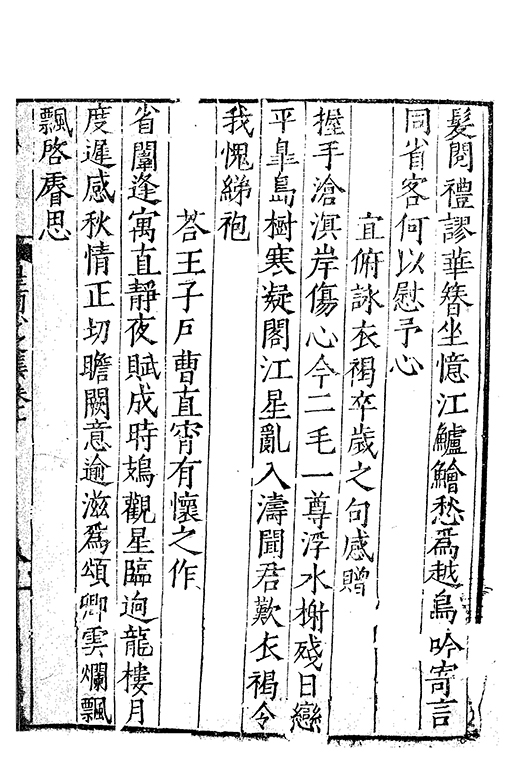 髮閱禮謬華簪坐憶江鱸鱠愁爲越鳥吟寄言
同省客何以慰予心
宜俯詠衣褐卒歲之句感贈
握手滄溟岸傷心今二毛一尊浮水榭殘日戀
平臯島樹寒凝閣江星亂入濤聞君歎衣褐令
我愧綈袍
荅王子戶曹直宵有懷之作
省闥逢寓直靜夜賦成時鳷觀星臨逈龍樓月
度遲感秋情正切瞻闕意逾滋爲頌卿雲爛飄
飄啓睿思